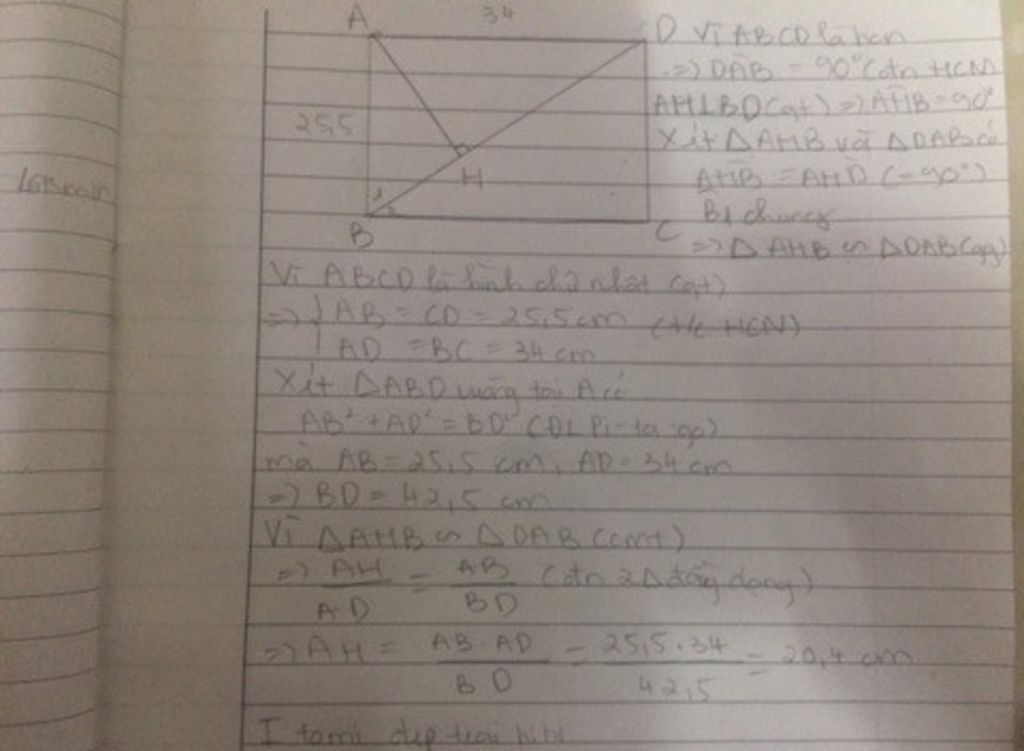 A 34 D Vì ABCD là hcn
=> DAB = 90° (đn HCN
AH⊥BD (gt) => AHB = 90°
25,5 Xét ΔAHB và ΔDAB có
H AHB = AHD (= 90°)
1 B1 chung
B C => Δ AHB ∽ ΔDAB (gg)
Vì ABCD là hình chữ nhật (gt)
=> { AB = CD = 25,5 cm (t/c HCN)
AD = BC = 34 cm
Xét ΔABD vuông tại A có
AB² + AD² = BD² (ĐL Pi-ta-go)
mà AB = 25,5 cm, AD = 34 cm
=> BD = 42,5 cm
Vì ΔAHB ∽ ΔDAB (cmt)
=> AH/AD = AB/BD (đn 2Δ đồng dạng)
=> AH = AB.AD/BD = 25,5.34/42,5 = 20,4 cm
I đẹp trai hihi